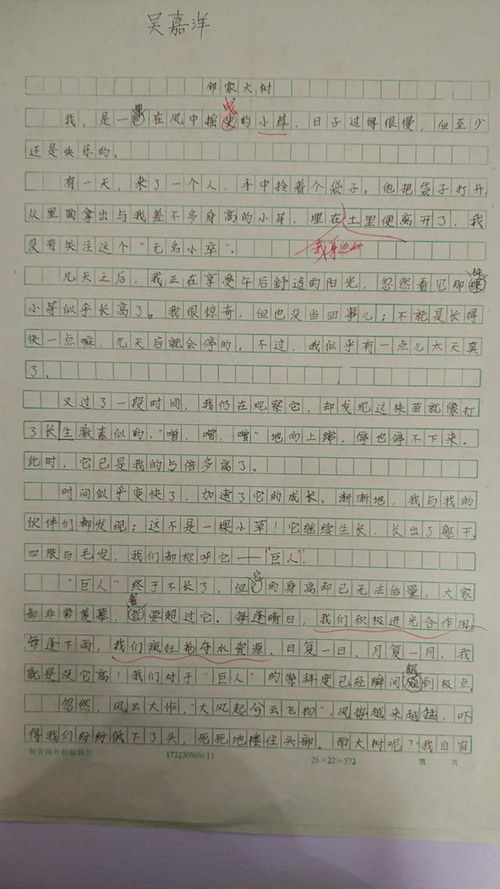 吴嘉洋
邻家大树
我,是一在风中摇曳的小草,日子过得很慢,但至少
还是快乐的。
有一天,来了一个人,手中拎着个袋子。他把袋子打开,
从里面拿出与我差不多身高的小草,埋在土里便离开了,我
我身边的
没有关注这个“无名小卒”。
几天之后,我正在享受午后舒适的阳光,忽然看见那
小草似乎长高了。我很惊奇,但也没当回事儿;不就是长得
快一点嘛,几天后就会停的。不过,我似乎有一点儿太天真
了。
又过了一段时间,我仍在观察它,却发现这株苗就像打
了长生激素似的,“噌,噌,噌”地向上蹿,停也停不下来。
此时,它已是我的与倍多高了。
时间似乎变快了,加速了它的成长。渐渐地,我与我的
伙伴们都发现:这不是一棵小草!它继续生长,长出了躯干,
四肢与毛发,我们都称呼它——“巨人”。
“巨人”终于不长了,但它的身高却已无法估量,大家
都非常羡慕,要超过它。每逢晴日,我们积极进光合作用。
每逢下雨,我们疯狂抢夺水资源,日复一日,月复一月,我
就是没它高!我们对于“巨人”的崇拜度已经瞬间到极点
忽然,风云大作,“大风起兮云飞扬”,风势越来越猛,吓
得我们纷纷低下了头,死死地搂住头部。而大树呢?我自
26×22=572
第 页